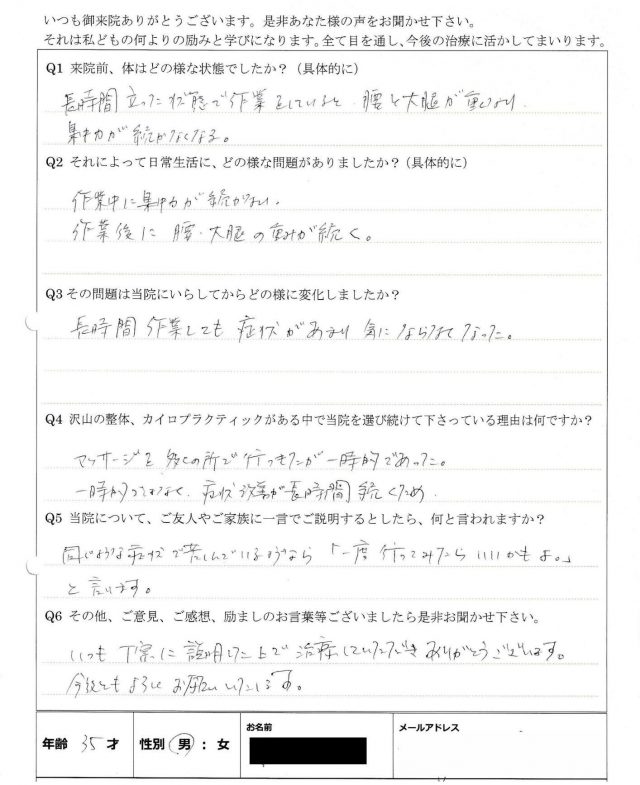 いつも御来院ありがとうございます。是非あなた様の声をお聞かせ下さい。
それは私どもの何よりの励みと学びになります。全て目を通し、今後の治療に活かしてまいります。
Q1 来院前、体はどの様な状態でしたか？（具体的に）
長時間 立った状態で作業をしていると 腰と大腿が重くなり
集中力が続かなくなる。
Q2 それによって日常生活に、どの様な問題がありましたか？（具体的に）
作業中に集中力が続かない。
作業後に 腰・大腿の重みが続く。
Q3 その問題は当院にいらしてからどの様に変化しましたか？
長時間 作業しても 症状があまり 気にならなくなった。
Q4 沢山の整体、カイロプラクティックがある中で当院を選び続けて下さっている理由は何ですか？
マッサージを 多くの所で行ってきたが一時的であった。
一時的ではなく、症状改善が長時間続くため
Q5 当院について、ご友人やご家族に一言でご説明するとしたら、何と言われますか？
同じような症状で苦しんでいるようなら「一度行ってみたらいいかもよ。」
と言います。
Q6 その他、ご意見、ご感想、励ましのお言葉等ございましたら是非お聞かせ下さい。
いつも丁寧に説明した上で治療していただきありがとうございます。
今後ともよろしくお願いいたします。
年齢 35 才 性別 男 : 女 お名前 メールアドレス